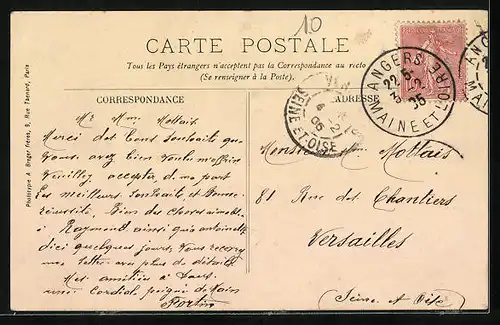 10
CARTE POSTALE
Tous les Pays étrangers n'acceptent pas la Correspondance au recto
(Se renseigner à la Poste).
CORRESPONDANCE
ADRESSE
ANGERS
22-5
3-2
05
MAINE ET LOIRE
SEINE-ET-OISE
Phototype A. Breger Frères, 9, Rue Thénard, Paris
Mr Mme Mottais
Merci des bons souhaits que
vous avez bien voulu m'offrir
Veuillez accepter de ma part
les meilleurs souhaits et bonne
réussite, Bien des choses aimables
à Raymond ainsi qu'à Antoinette
d'ici quelques jours vous recevrez
une lettre avec plus de détails
Mes amitiés à tous
une Cordiale poignée de Mains
Fortin
Monsieur Mottais
81 Rue des Chantiers
Versailles
(Seine et Oise)